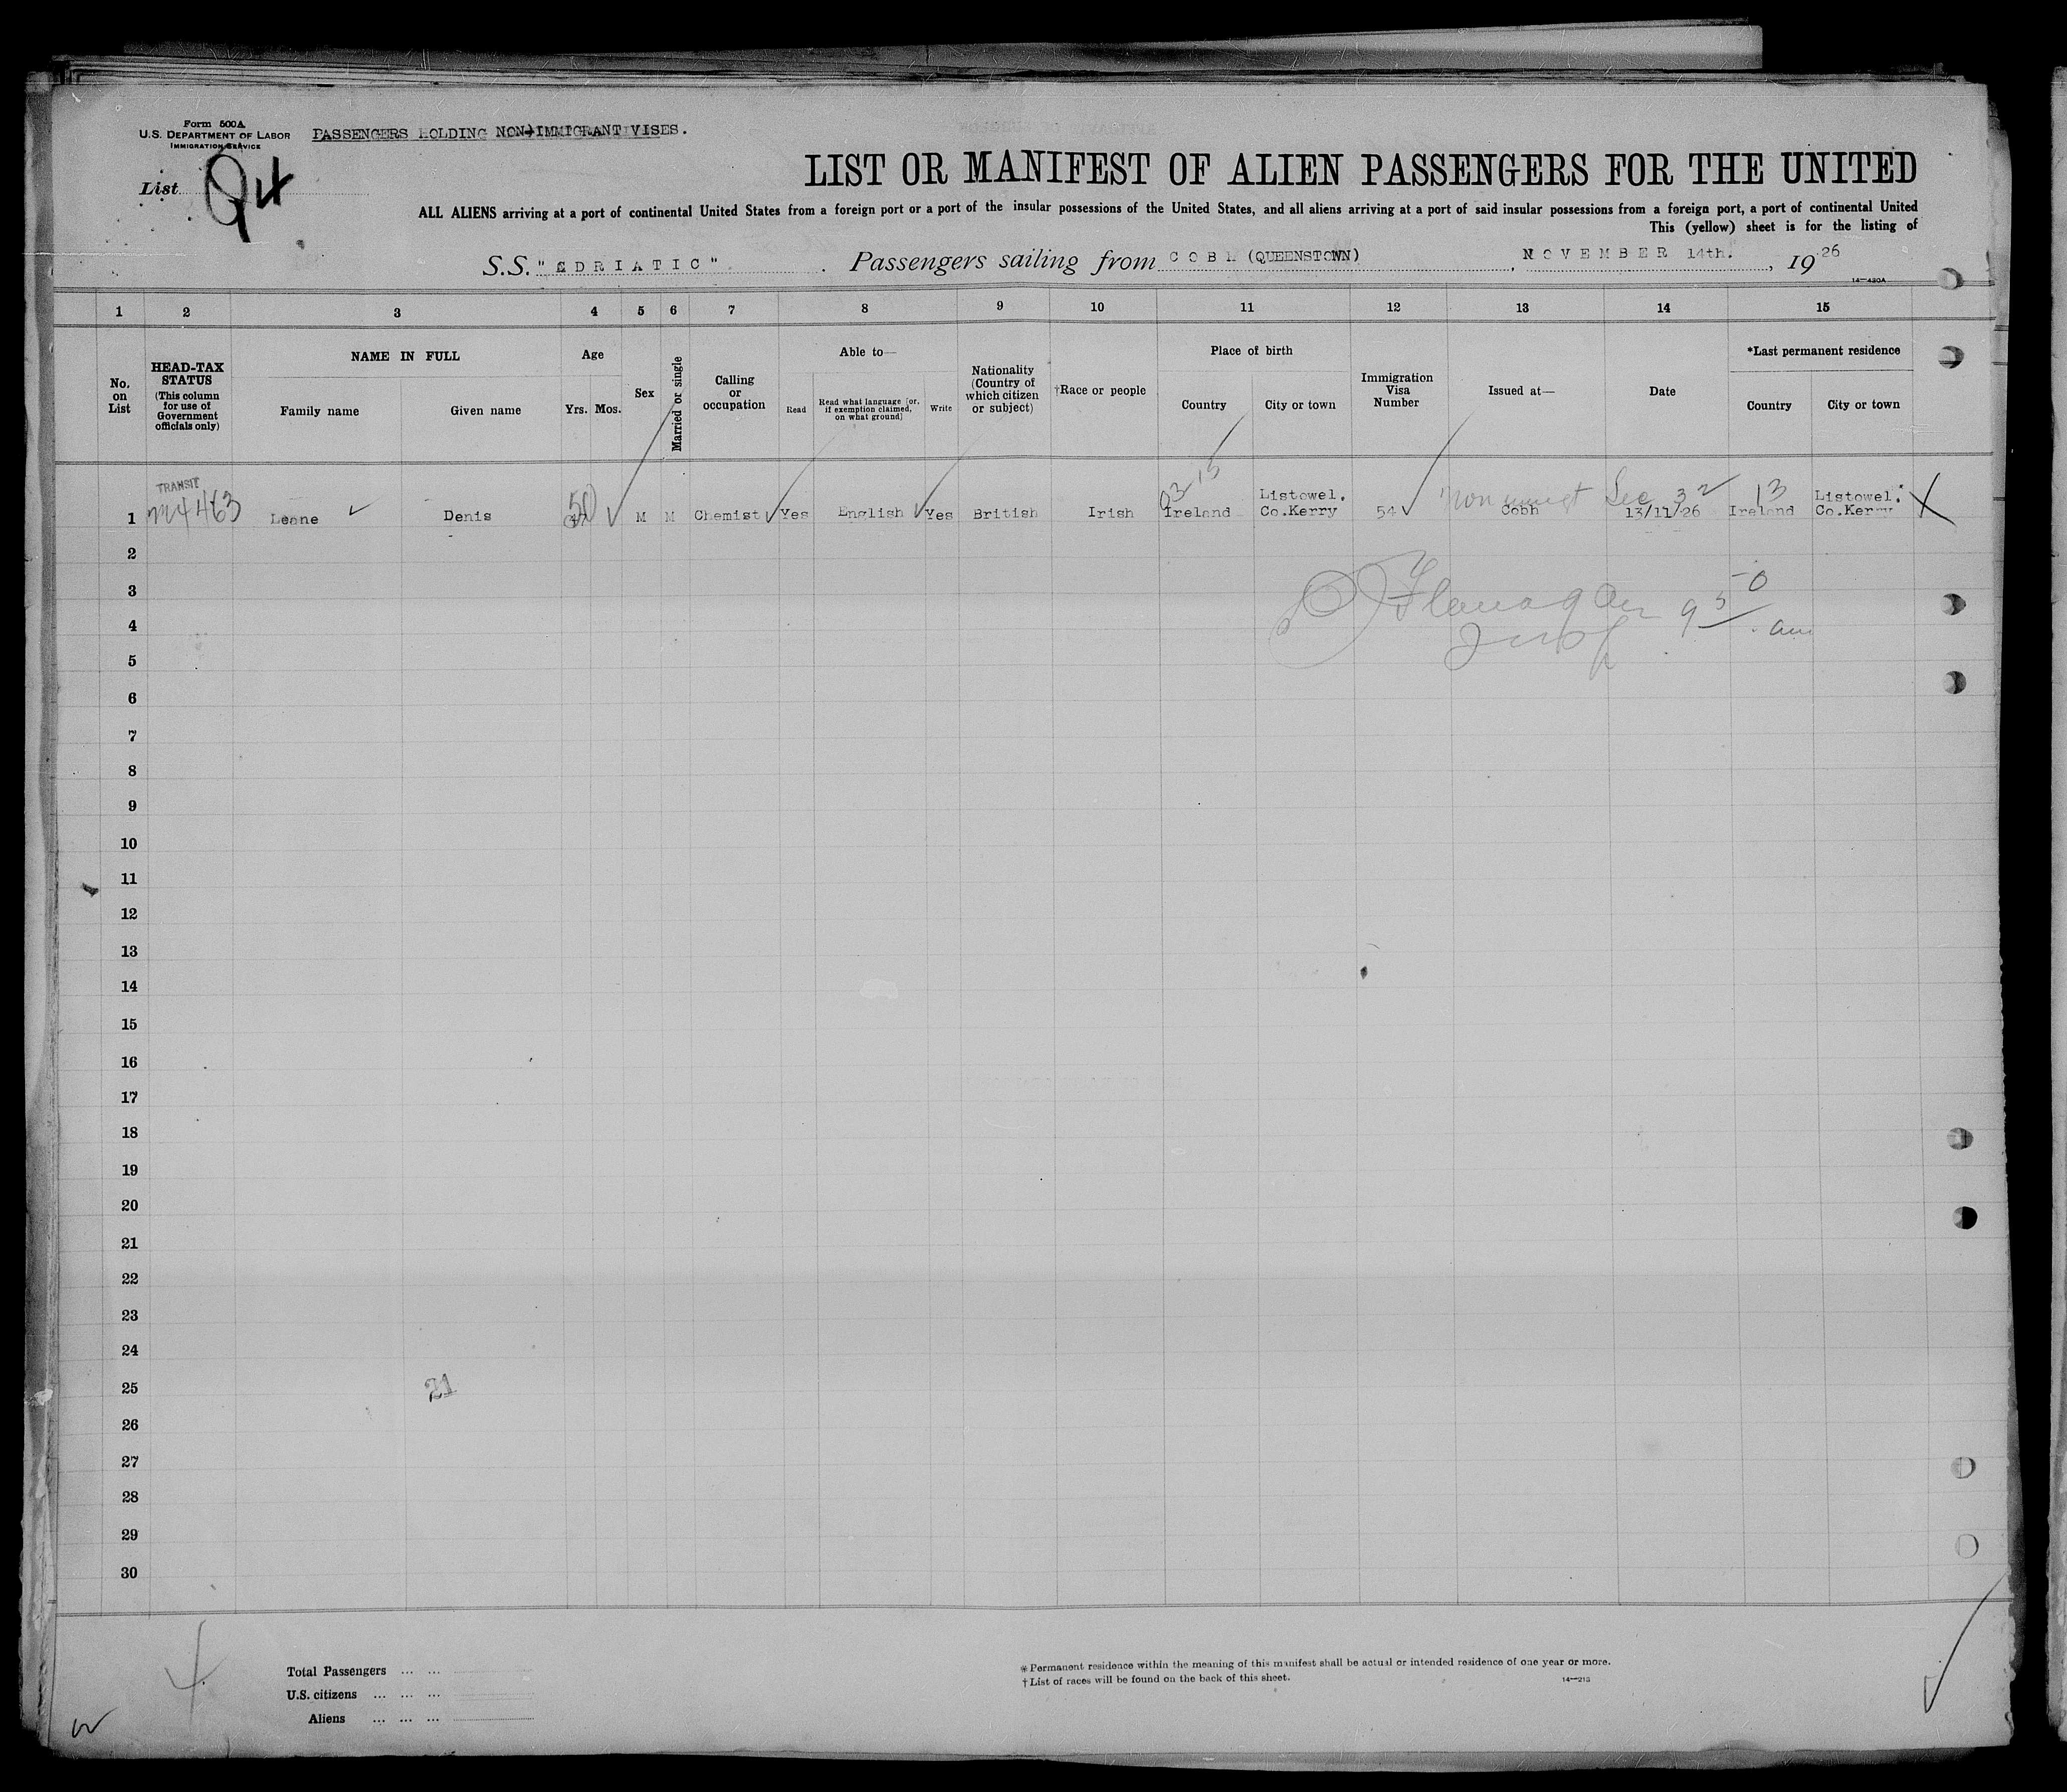 Form 500A
U.S. DEPARTMENT OF LABOR
IMMIGRATION SERVICE
PASSENGERS HOLDING NON-IMMIGRANT VISES.
List 94
LIST OR MANIFEST OF ALIEN PASSENGERS FOR THE UNITED
ALL ALIENS arriving at a port of continental United States from a foreign port or a port of the insular possessions of the United States, and all aliens arriving at a port of said insular possessions from a foreign port, a port of continental United
This (yellow) sheet is for the listing of
S.S. "ADRIATIC" . Passengers sailing from COBH (QUEENSTOWN) , NOVEMBER 14th. , 19 26
14—430A
1 2 3 4 5 6 7 8 9 10 11 12 13 14 15
No. on List
HEAD-TAX STATUS (This column for use of Government officials only)
NAME IN FULL
Family name Given name
Age
Yrs. Mos.
Sex
Married or single
Calling or occupation
Able to—
Read Read what language [or, if exemption claimed, on what ground] Write
Nationality (Country of which citizen or subject)
†Race or people
Place of birth
Country City or town
Immigration Visa Number
Issued at—
Date
*Last permanent residence
Country City or town
TRANSIT
1 Leane Denis 50 M M Chemist Yes English Yes British Irish Ireland Listowel. Co.Kerry 54 Cobh 13/11/26 Ireland Listowel. Co.Kerry X
Non immgt Sec 3 2 13
2
3
Flanagan 9 50 am
4
Insp
5
6
7
8
9
10
11
12
13
14
15
16
17
18
19
20
21
22
23
24
25
21
26
27
28
29
30
Total Passengers ... ...
U.S. citizens ... ... ...
Aliens ... ... ...
* Permanent residence within the meaning of this manifest shall be actual or intended residence of one year or more.
† List of races will be found on the back of this sheet.
14—213